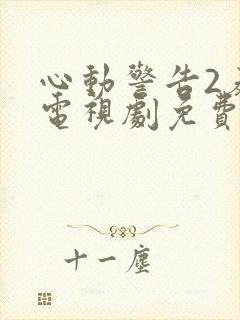 心動警告2
電視劇免費
十一塵